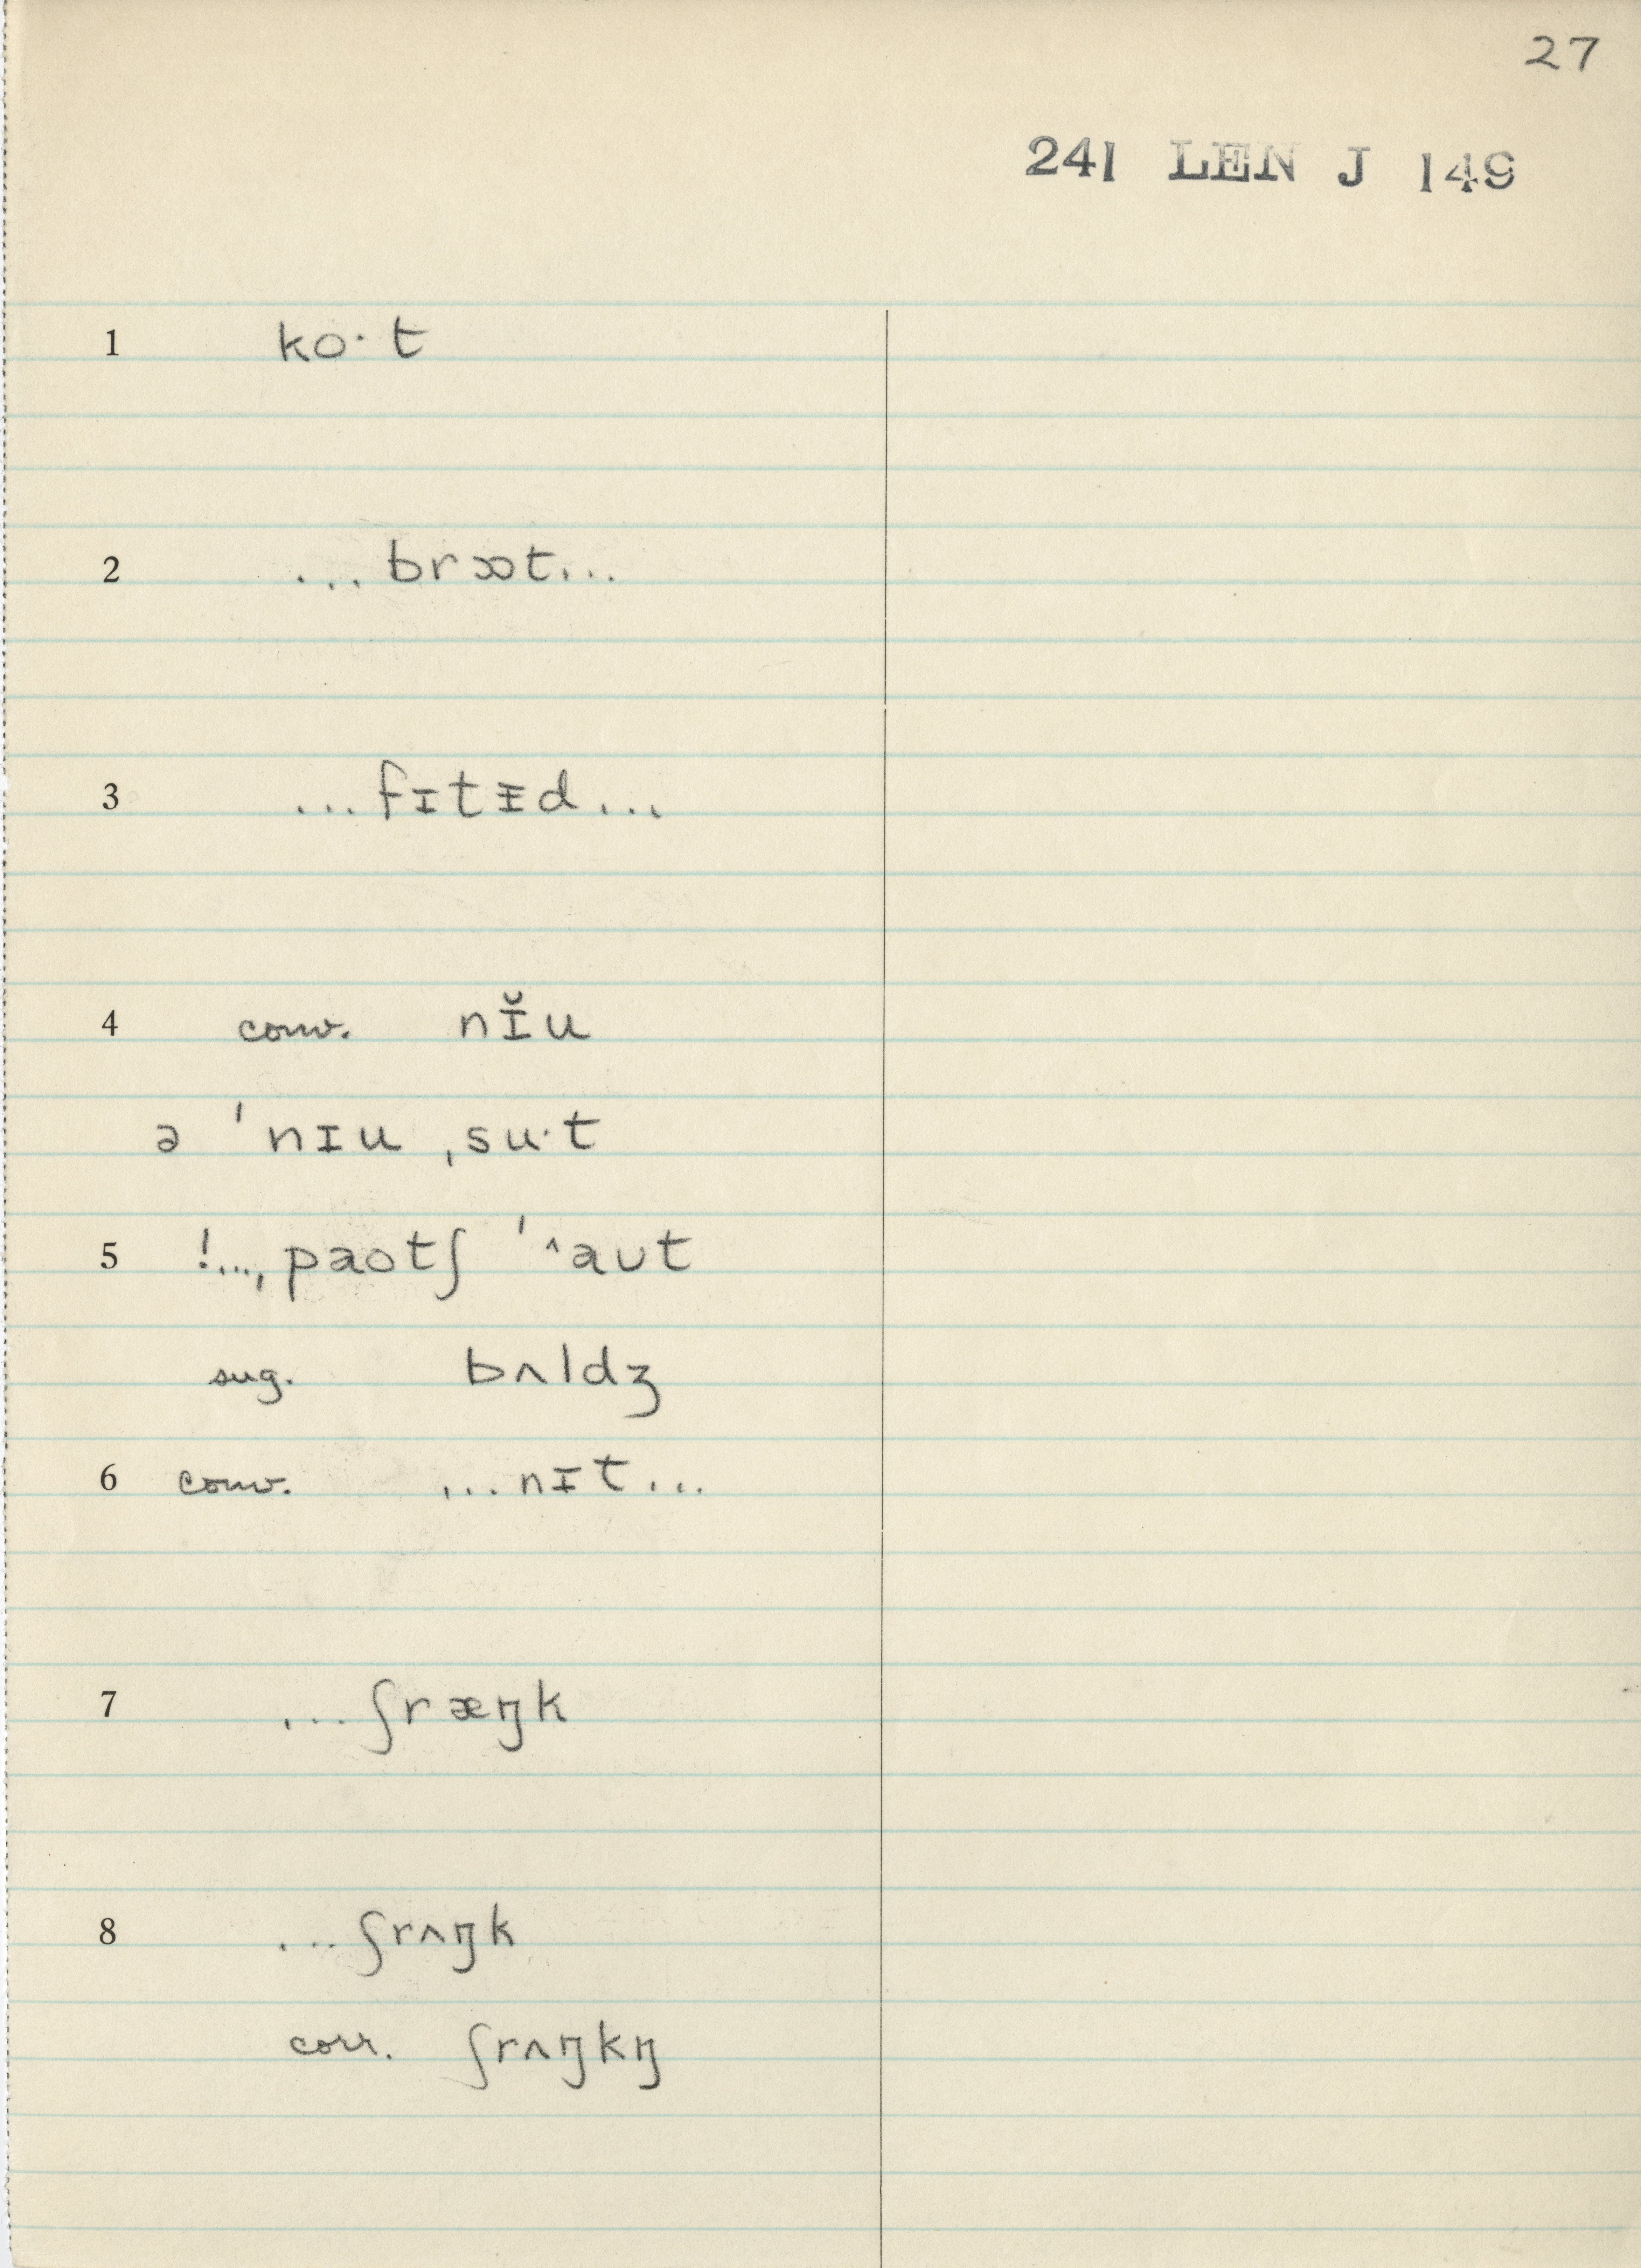 27
241 LEN J 149
1 ko·t
2 ...brɔɒt...
3 ...fɪtᵻd...
4 conv. nɪ̆u
ə ˈnɪu ˌsu·t
5 !...ˌpaotʃ ˈ^aut
sug. bʌldʒ
6 conv. ...nɪt...
7 ...ʃræŋk
8 ...ʃrʌŋk
corr. ʃrʌŋkŋ